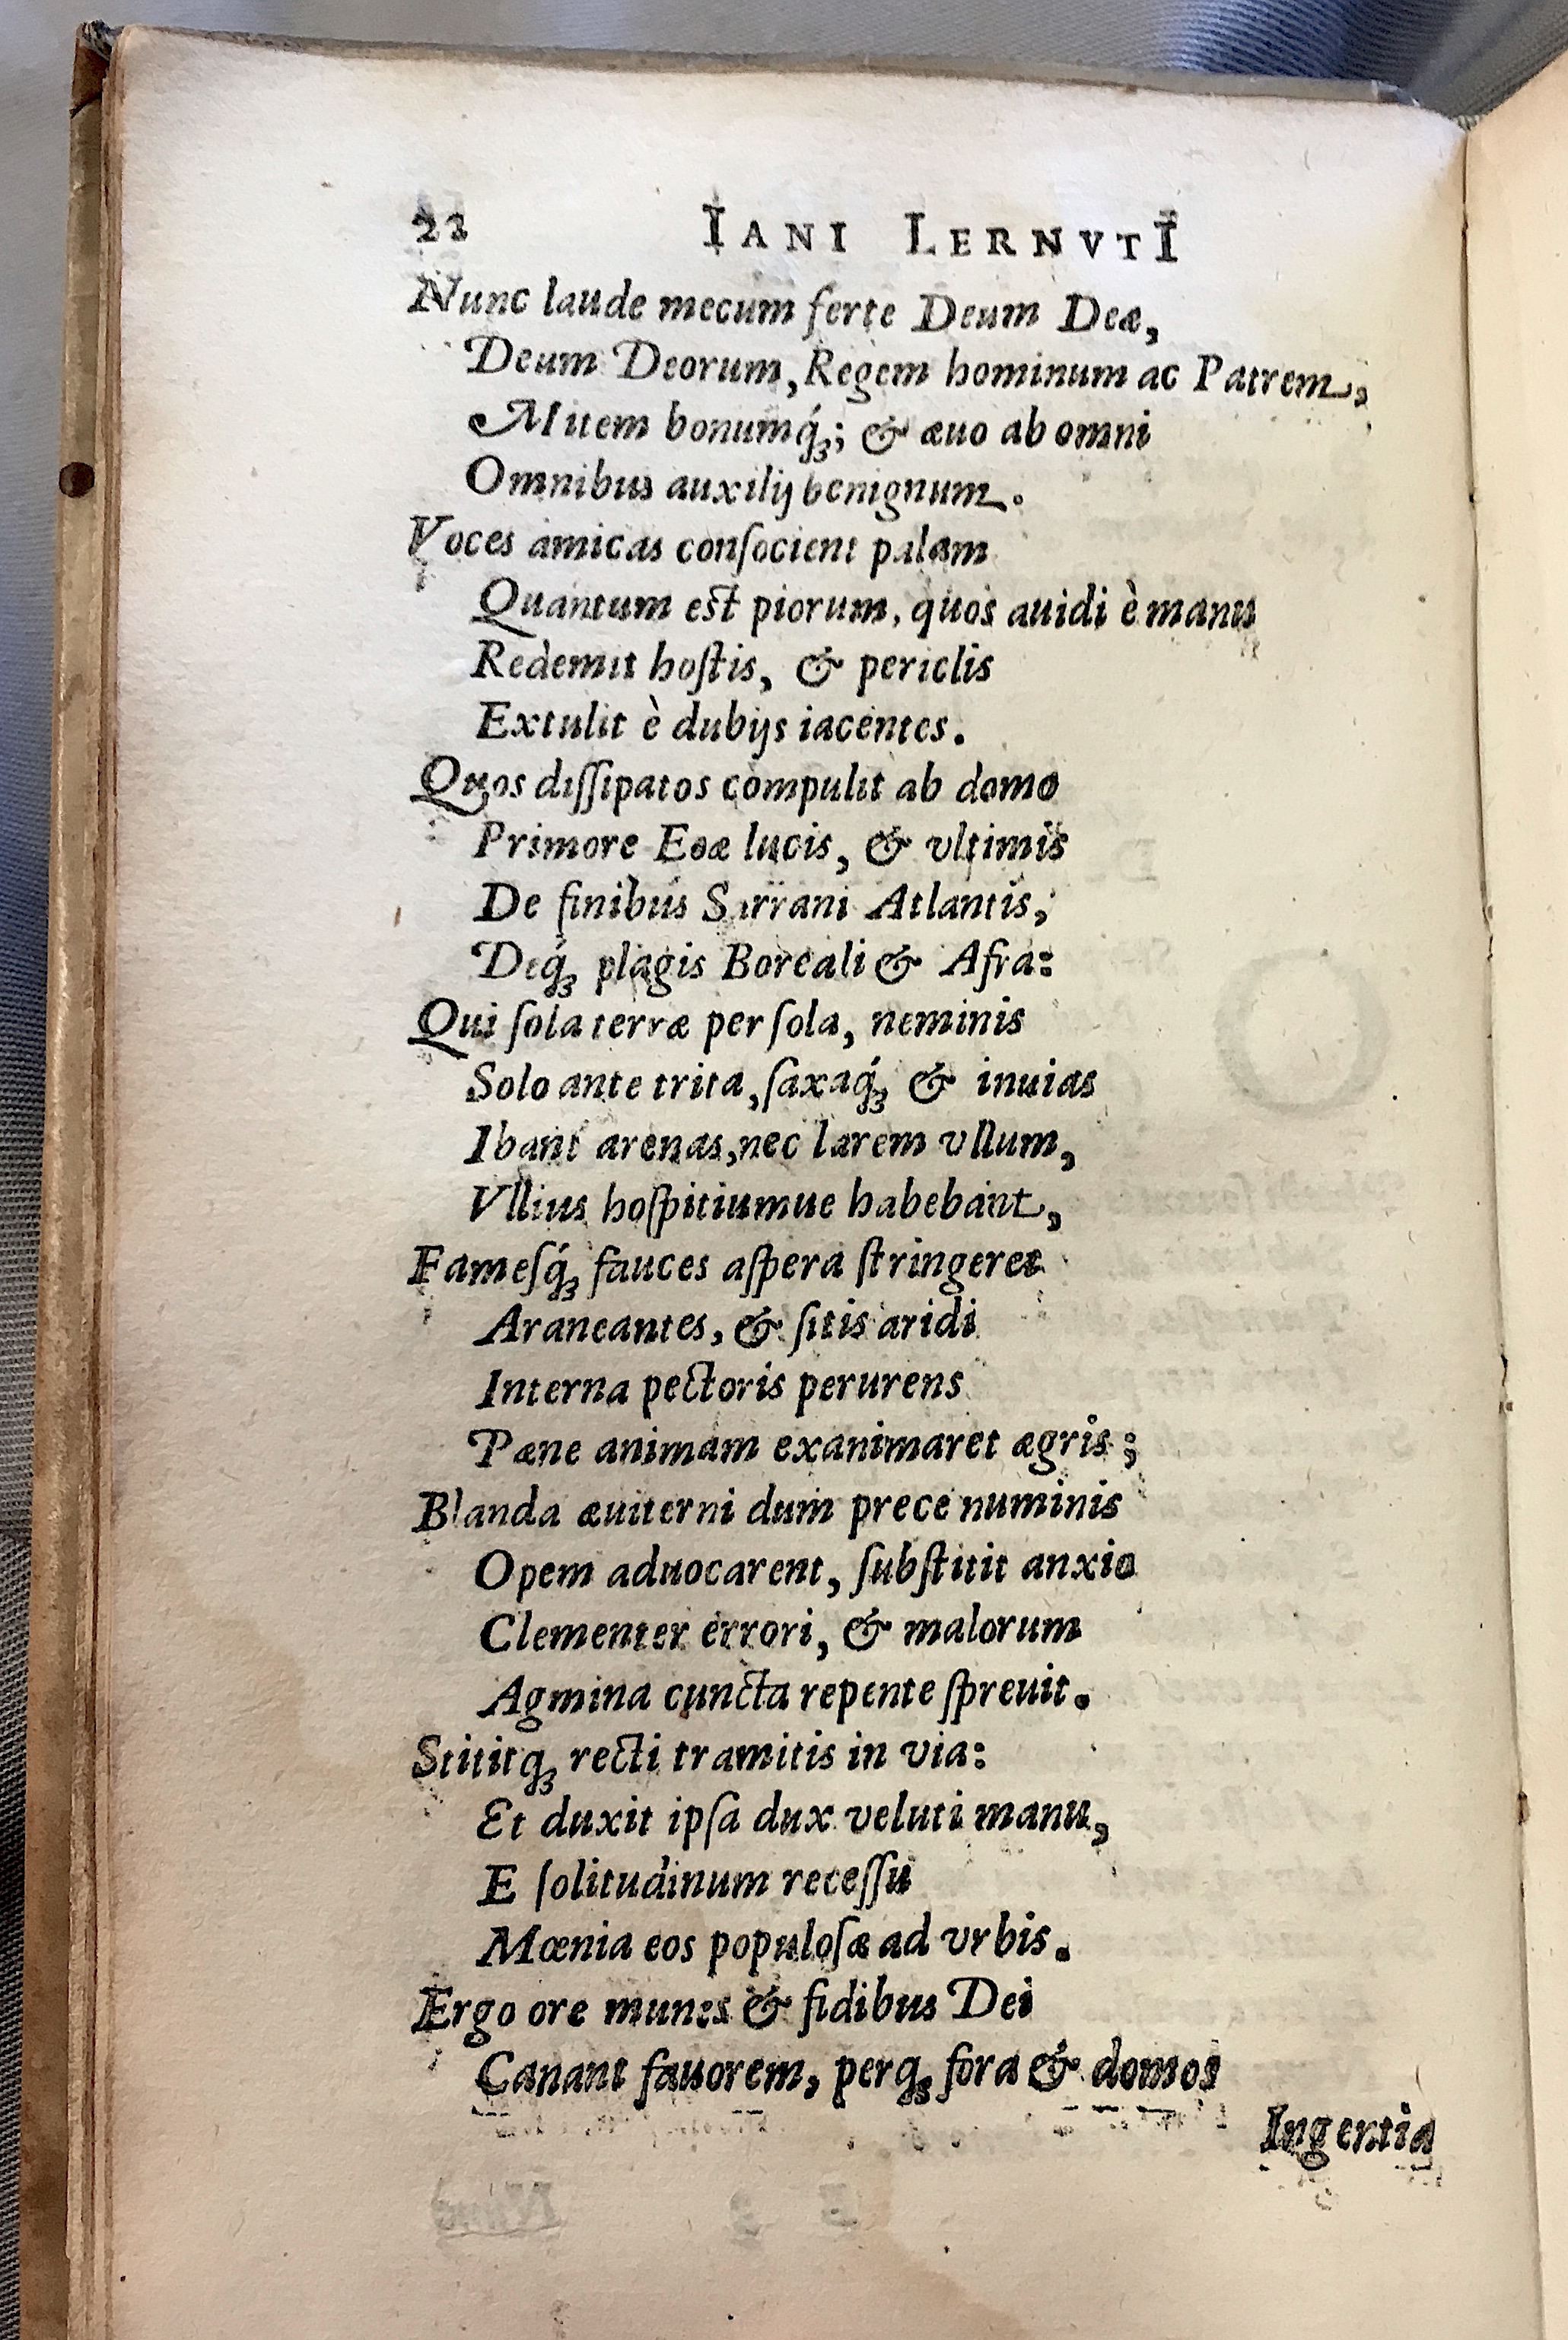 22 IANI LERNVTI
Nunc laude mecum ferte Deum Deæ,
Deum Deorum, Regem hominum ac Patrem,
Mitem bonumq́ꝫ; & æuo ab omni
Omnibus auxilij benignum.
Voces amicas conſocient palam
Quantum est piorum, quos auidi è manu
Redemit hoſtis, & periclis
Extulit è dubijs iacentes.
Quos diſſipatos compulit ab domo
Primore Eoæ lucis, & vltimis
De finibus Sarrani Atlantis,
Deq́ꝫ plagis Boreali & Afra:
Qui ſola terræ per ſola, neminis
Solo ante trita, ſaxaq́ꝫ & inuias
Ibant arenas, nec larem vllum,
Vllius hoſpitiumue habebant,
Fameſq́ꝫ fauces aſpera ſtringeret
Araneantes, & ſitis aridi
Interna pectoris perurens
Pæne animam exanimaret ægris;
Blanda æuiterni dum prece numinis
Opem aduocarent, ſubſtitit anxio
Clementer errori, & malorum
Agmina cuncta repente ſpreuit.
Stititqꝫ recti tramitis in via:
Et duxit ipſa dux veluti manu,
E ſolitudinum receſſu
Mœnia eos populoſæ ad vrbis.
Ergo ore munes & fidibus Dei
Canant fauorem, perqꝫ fora & domos
Ingentia